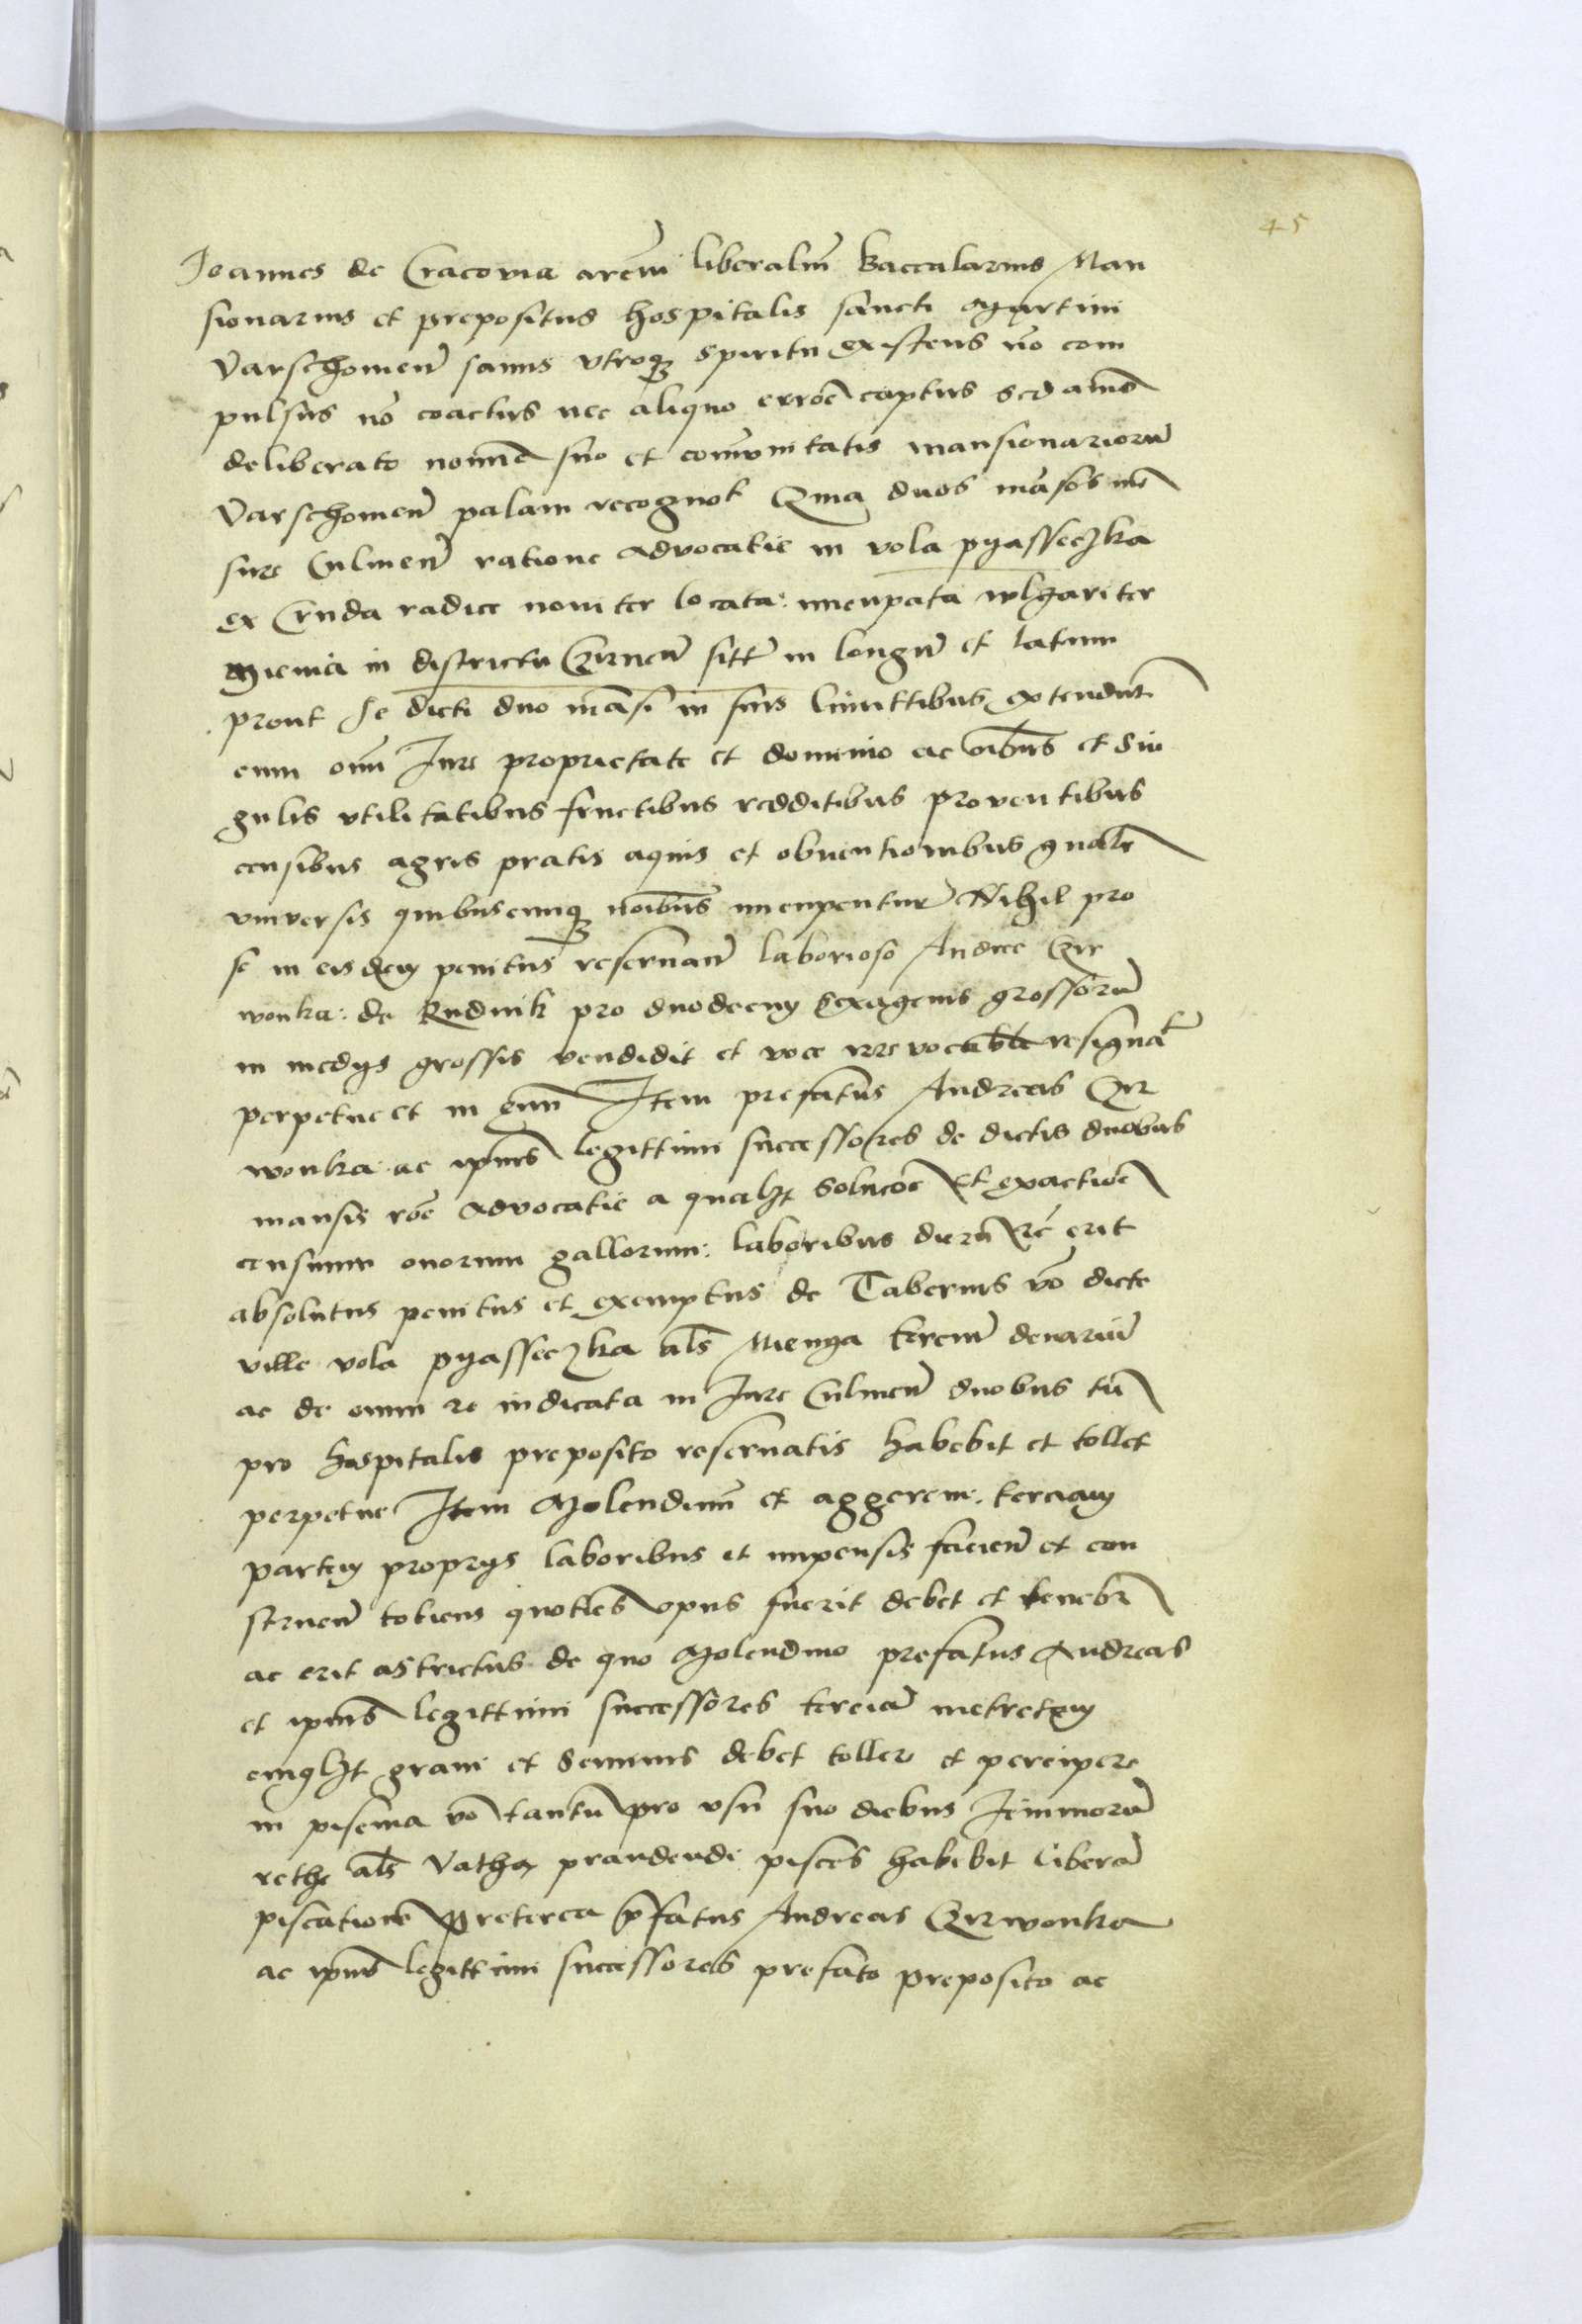 45
Joannes de Cracovia arciũ liberaliũ Baccalarius Man
sionarius et prepositus hospitalis sancti Martini
Varschoviẽn sanus utroq spiritu existens nõ com
pulsus nõ coactus nec aliquo errore captus sed animo
deliberato nomine suo et cõmunitatis mansionariorũ
Varschovien palam recognovit Quia duos mãsos men
sure Culmen ratione advocatie in vola pyasseczka
ex Cruda radice noviter locata nuncupata wlgariter
Mienia in districtu Cirnen sitt in longũ et latum
prout se dicti duo mãsi in suis limittibus extendunt
cum omni Jure proprietate et dominio ac oĩbus et Sin
gulis utilitatibus fructibus redditibus proventibus
censibus agris pratis aquis et obventionibus gñalr
universis quibuscunq noĩbus nuncupentur Nihil pro
se in eisdem penitus reservañ laborioso Andree Cir
wonka de Rudnik pro duodecim Sexagenis grossorũ
in medys grossis vendidit et voce irrevocabili resignavit
perpetue et in evũ Item prefatus Andreas Cir
wonka ac ipius legittimi successores de dictis duobus
mansis rõne advocatie a qualzt Solucõe et exactiõe
censuum ovorum gallorum laboribus diurñ erit
absolutus penitus et exemptus de Tabernis võ dicte
ville vola pyasseczka als Mienya terciũ denariũ
ac de omni re iudicata in Jure Culmen duobus tñ
pro hospitalis preposito reservatis habebit et tollet
perpetue Item Molendinũ et aggerem terciam
partem proprys laboribus et impensis facien et con
struen totiens quoties opus fuerit debet et tenebr
ac erit astrictus de quo Molendino prefatus Andreas
et ipius legittimi successores terciã metretam
cuiuslzt grani et Seminis debet tollere et percipere
in piscina võ tantũ pro usu suo diebus Jeiuniorũ
rethe als Vatha prandendi pisces habebit liberã
piscatiorẽ Preterea p̃fatus Andreas Cirwonka
ac ipius legittimi successores prefato preposito ac